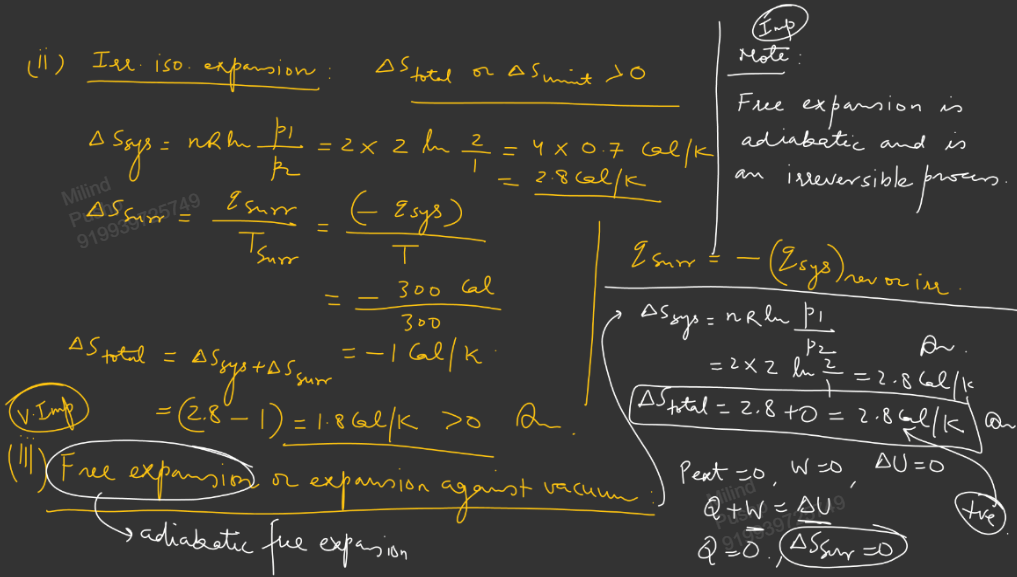 (ii) Irr. iso. expansion : ΔS total or ΔS univ > 0
ΔS sys = nR ln p1/p2 = 2 × 2 ln 2/1 = 4 × 0.7 Cal/K
= 2.8 Cal/K
ΔS surr = q surr / T surr = (− q sys) / T
= − 300 Cal / 300
= −1 Cal/K
ΔS total = ΔS sys + ΔS surr
V. Imp
= (2.8 − 1) = 1.8 Cal/K > 0
(iii) Free expansion or expansion against vacuum :
→ adiabatic free expansion
Imp
Note :
Free expansion is
adiabatic and is
an irreversible process.
q surr = − (q sys) rev or irr.
ΔS sys = nR ln p1/p2
= 2 × 2 ln 2/1 = 2.8 Cal/K
ΔS total = 2.8 + 0 = 2.8 Cal/K
+ve
Pext = 0, W = 0, ΔU = 0
Q + W = ΔU
Q = 0, ΔS surr = 0
Milind
919939725749
Milind